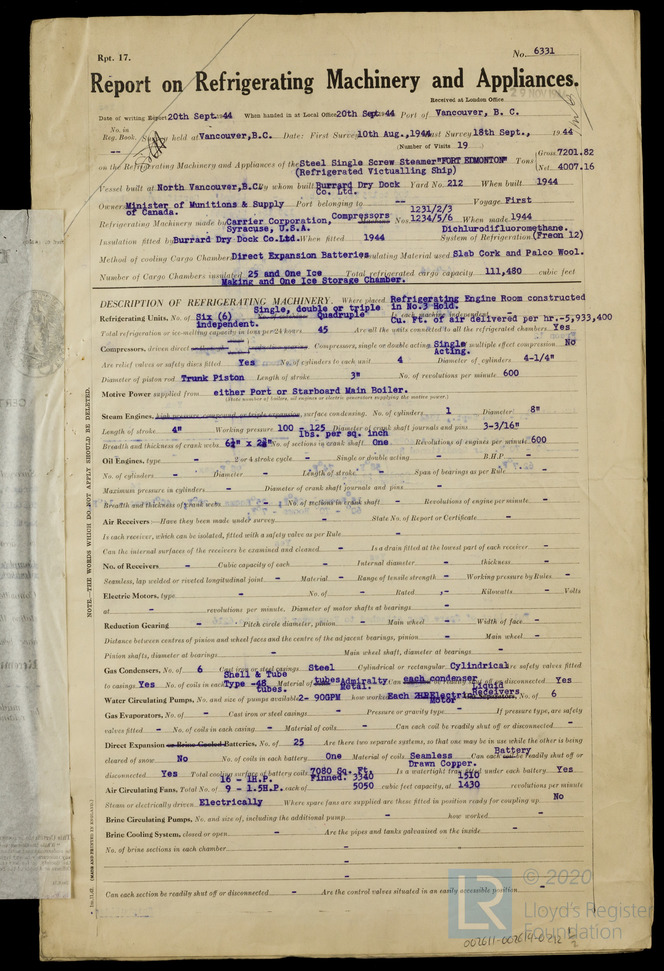 Rpt. 17.
No. 6331
Report on Refrigerating Machinery and Appliances.
Received at London Office
Date of writing Report 20th Sept. 1944 When handed in at Local Office 20th Sept. 1944 Port of Vancouver, B. C.
No. in Reg. Book. -- Survey held at Vancouver, B.C. Date: First Survey 10th Aug., 1944 Last Survey 18th Sept., 1944
(Number of Visits 19
on the Refrigerating Machinery and Appliances of the Steel Single Screw Steamer "FORT EDMONTON" Tons Gross 7201.82 Net 4007.16
(Refrigerated Victualling Ship)
Vessel built at North Vancouver, B.C. By whom built Burrard Dry Dock Co. Ltd. Yard No. 212 When built 1944
Owners Minister of Munitions & Supply of Canada. Port belonging to -- Voyage First
Refrigerating Machinery made by Carrier Corporation, Syracuse, U.S.A. Compressors Nos. 1231/2/3 1234/5/6 When made 1944
Insulation fitted by Burrard Dry Dock Co. Ltd. When fitted 1944 System of Refrigeration Dichlurodifluoromethane. (Freon 12)
Method of cooling Cargo Chambers Direct Expansion Batteries Insulating Material used Slab Cork and Palco Wool.
Number of Cargo Chambers insulated 25 and One Ice Making and One Ice Storage Chamber. Total refrigerated cargo capacity 111,480 cubic feet
DESCRIPTION OF REFRIGERATING MACHINERY. Where placed Refrigerating Engine Room constructed in No.3 Hold.
Refrigerating Units, No. of Six (6) independent. Single, double or triple Quadruple Is each machine independent Cu. Ft. of air delivered per hr.-5,933,400
Total refrigeration or ice-melting capacity in tons per 24 hours 45 Are all the units connected to all the refrigerated chambers Yes
Compressors, driven direct Compressors, single or double acting Single Acting. multiple effect compression No
Are relief valves or safety discs fitted Yes No. of cylinders to each unit 4 Diameter of cylinders 4-1/4"
Diameter of piston rod Trunk Piston Length of stroke 3" No. of revolutions per minute 600
Motive Power supplied from either Port or Starboard Main Boiler.
(State number of boilers, oil engines or electric generators supplying the motive power.)
Steam Engines, high pressure, compound, or triple expansion, surface condensing. No. of cylinders 1 Diameter 8"
Length of stroke 4" Working pressure 100 - 125 lbs. per sq. inch Diameter of crank shaft journals and pins 3-3/16"
Breadth and thickness of crank webs No. of sections in crank shaft One Revolutions of engines per minute 600
Oil Engines, type - 2 or 4 stroke cycle - Single or double acting - B.H.P. -
No. of cylinders - Diameter - Length of stroke - Span of bearings as per Rule -
Maximum pressure in cylinders - Diameter of crank shaft journals and pins -
Breadth and thickness of crank webs - No. of sections in crank shaft - Revolutions of engine per minute -
Air Receivers:—Have they been made under survey - State No. of Report or Certificate -
Is each receiver, which can be isolated, fitted with a safety valve as per Rule -
Can the internal surfaces of the receivers be examined and cleaned - Is a drain fitted at the lowest part of each receiver -
No. of Receivers - Cubic capacity of each - Internal diameter - thickness -
Seamless, lap welded or riveted longitudinal joint - Material - Range of tensile strength - Working pressure by Rules -
Electric Motors, type - No. of - Rated - Kilowatts - Volts
at - revolutions per minute. Diameter of motor shafts at bearings -
Reduction Gearing - Pitch circle diameter, pinion - Main wheel - Width of face -
Distance between centres of pinion and wheel faces and the centre of the adjacent bearings, pinion - Main wheel -
Pinion shafts, diameter at bearings - Main wheel shaft, diameter at bearings -
Gas Condensers, No. of 6 Cast iron or steel casings Steel Cylindrical or rectangular Cylindrical Are safety valves fitted
to casings Yes No. of coils in each Shell & Tube Type -48 tubes. Material of tubes Admiralty Metal. Can each condenser be readily shut off or disconnected Yes
Water Circulating Pumps, No. and size of pumps available 2- 90GPM how worked Each 2HP Electric Motor Liquid Receivers No. of 6
Gas Evaporators, No. of - Cast iron or steel casings - Pressure or gravity type - If pressure type, are safety
valves fitted - No. of coils in each casing - Material of coils - Can each coil be readily shut off or disconnected -
Direct Expansion or Brine Cooled Batteries, No. of 25 Are there two separate systems, so that one may be in use while the other is being
cleared of snow No No. of coils in each battery One Material of coils Seamless Drawn Copper. Can each Battery be readily shut off or
disconnected Yes Total cooling surface of battery coils 7080 Sq. Ft. Finned. Is a watertight tray fitted under each battery Yes
Air Circulating Fans, Total No. of 16 - 1H.P. 9 - 1.5H.P. each of 3340 5050 cubic feet capacity, at 1510 1430 revolutions per minute
Steam or electrically driven Electrically Where spare fans are supplied are these fitted in position ready for coupling up No
Brine Circulating Pumps, No. and size of, including the additional pump - how worked -
Brine Cooling System, closed or open - Are the pipes and tanks galvanised on the inside -
No. of brine sections in each chamber -
-
-
Can each section be readily shut off or disconnected - Are the control valves situated in an easily accessible position -
NOTE.—THE WORDS WHICH DO NOT APPLY SHOULD BE DELETED.
(MADE AND PRINTED IN ENGLAND.)
LR
© 2020
Lloyd's Register
Foundation
002611-002614-0212 1/2